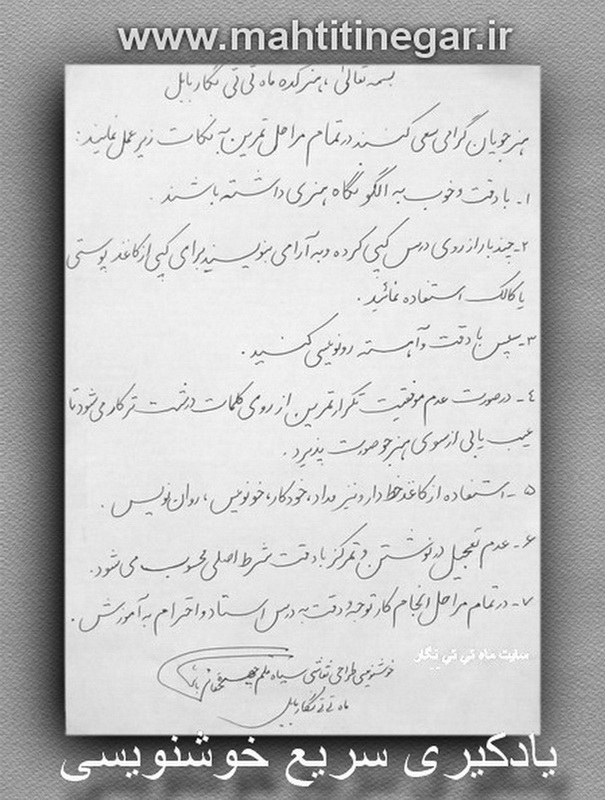 www.mahtitinegar.ir
بسمه تعالی ، هنرکده ماه تی تی نگار بابل
هنرجویان گرامی سعی کنند در تمام مراحل تمرین به نکات زیر عمل نمایند :
۱- با دقت و خوب به الگو نگاه هنری داشته باشند .
۲- چند بار از روی درس کپی کرده و به آرامی بنویسند برای کپی از کاغذ پوستی
یا کالک استفاده نمائید .
۳- سپس با دقت و آهسته رونویسی کنید .
۴- در صورت عدم موفقیت تکرار تمرین از روی کلمات درشت تر کار می شود تا
عیب یابی از سوی هنرجو صورت پذیرد .
۵- استفاده از کاغذ خط دار و نیز مداد ، خودکار ، خودنویس ، روان نویس .
۶- عدم تعجیل در نوشتن و تمرکز با دقت شرط اصلی محسوب می شود .
۷- در تمام مراحل انجام کار توجه و دقت به درس استاد و احترام به آموزش .
سایت ماه تی تی نگار
خوشنویسی طراحی نقاشی سیاه قلم
ماه تی تی نگار بابل
یادگیری سریع خوشنویسی